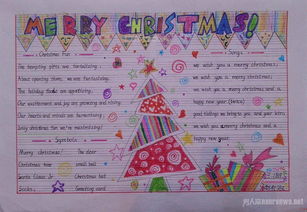 MERRY CHRISTMAS!
Christmas Fun
The tempting gifts we fantasizing;
About opening them, we are fantasizing.
The holiday foods are appetizing,
Our excitement and joy are growing and rising.
Our hearts and minds are harmonizing;
Symbols
Merry Christmas! The deer
Christmas tree small ball
Santa Claus Christmas hat
Socks, Greeting card
Songs
we wish you a merry christmas;
we wish you a merry christmas;
we wish you a merry christmas and a
happy new year. (twice)
good tidings we bring to you and your kin;
we wish you a merry christmas and a
happy new year.